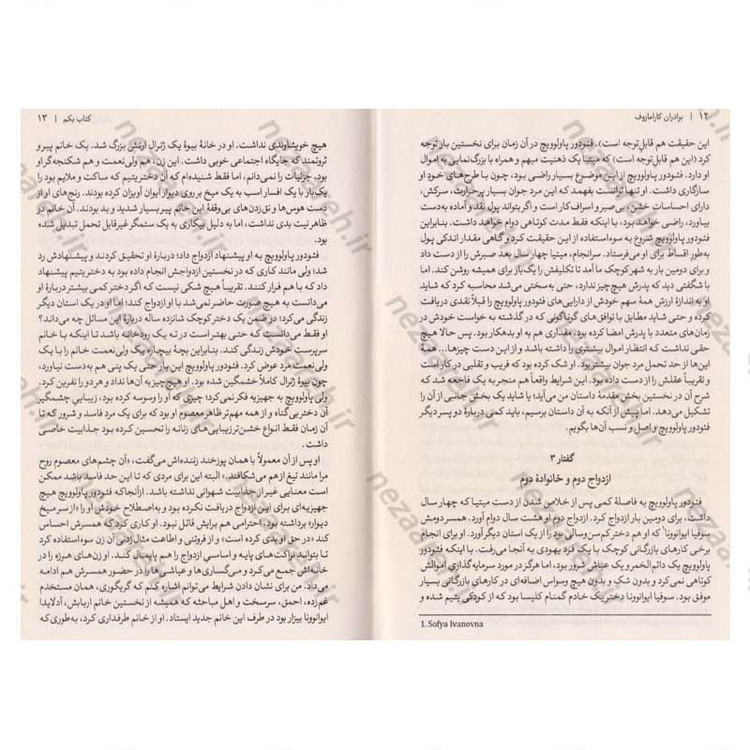 ۱۲ | برادران کارامازوف
این حقیقت هم قابل‌توجه است). فئودور پاولوویچ در آن زمان برای نخستین بار توجه
کرد (این هم قابل توجه است) که میتیا یک ذهنیت مبهم و همراه با بزرگ‌نمایی به اموال
او دارد. فئودور پاولوویچ از این موضوع بسیار راضی بود، چون با طرح‌های خود او
سازگاری داشت. او تنها توانست بفهمد که این مرد جوان بسیار پرحرارت، سرکش،
دارای احساسات خشن، بی‌صبر و اسراف‌کار است و اگر بتواند پول نقد و آماده به‌دست
بیاورد، راضی خواهد بود، با اینکه فقط مدت کوتاهی دوام خواهد داشت. بنابراین
فئودور پاولوویچ شروع به سوءاستفاده از این حقیقت کرد و گاهی مقدار اندکی پول
به‌طور اقساط برای او می‌فرستاد. سرانجام، میتیا چهار سال بعد صبرش را از دست داد
و برای دومین بار به شهر کوچک ما آمد تا تکلیفش را یک‌بار برای همیشه روشن کند. اما
با شگفتی دید که پدرش هیچ‌چیز ندارد، حتی به‌سختی می‌شد محاسبه کرد که شاید
او به اندازهٔ ارزش همهٔ سهم خودش از دارایی‌های فئودور پاولوویچ را قبلاً نقدی دریافت
کرده و حتی شاید مطابق با توافق‌های گوناگونی که در گذشته به خواست خودش در
زمان‌های متعدد با پدرش امضا کرده بود، مقداری هم به او بدهکار بود. پس حالا هیچ
حقی نداشت که انتظار اموال بیشتری را داشته باشد و از این دست چیزها... همهٔ
این‌ها از حد تحمل مرد جوان بیشتر بود. او شک کرده بود که فریب و تقلبی در کار است
و تقریباً عقلش را از دست داده بود. این شرایط واقعاً هم منجر به یک فاجعه شد که
شرح آن در نخستین بخش مقدمهٔ داستان من می‌آید؛ یا شاید یک بخش جانبی از آن را
تشکیل می‌دهد. اما پیش از آنکه به آن داستان برسیم، باید کمی دربارهٔ دو پسر دیگر
فئودور پاولوویچ و اصل و نسب آن‌ها بگویم.
گفتار ۳
ازدواج دوم و خانوادهٔ دوم
فئودور پاولوویچ به فاصلهٔ کمی پس از خلاص شدن از دست میتیا که چهار سال
داشت، برای دومین بار ازدواج کرد. ازدواج دوم او هشت سال دوام آورد. همسر دومش
سوفیا ایوانوونا¹ که او هم دختر کم‌سن‌وسالی بود را از یک استان دیگر آورد. او برای انجام
برخی کارهای بازرگانی کوچک با یک فرد یهودی به آنجا می‌رفت. با اینکه فئودور
پاولوویچ یک دائم‌الخمر و یک عیاش شرور بود، اما هرگز در مورد سرمایه گذاری اموالش
کوتاهی نمی‌کرد و بدون شک و بدون هیچ وسواس اضافه‌ای در کارهای بازرگانی بسیار
موفق بود. سوفیا ایوانوونا دختر یک خادم گمنام کلیسا بود که از کودکی یتیم شده و
1. Sofya Ivanovna
کتاب یکم | ۱۳
هیچ خویشاوندی نداشت. او در خانهٔ بیوهٔ یک ژنرال ارتش بزرگ شد. یک خانم پیر و
ثروتمند که جایگاه اجتماعی خوبی داشت. این زن، هم ولی‌نعمت و هم شکنجه‌گر او
بود. جزئیات را نمی‌دانم، اما فقط شنیده‌ام که آن دختر یتیم که ساکت و ملایم بود را
یک‌بار با یک افسار اسب به یک میخ بر روی دیوار ایوان آویزان کرده بودند. رنج‌های او از
دست هوس‌ها و نق‌زدن‌های بی‌وقفهٔ این خانم پیر بسیار شدید و بد بودند. آن خانم در
ظاهر نیت بدی نداشت، اما به دلیل بیکاری به یک ستمگر غیرقابل تحمل تبدیل شده
بود.
فئودور پاولوویچ به او پیشنهاد ازدواج داد؛ دربارهٔ او تحقیق کردند و پیشنهادش رد
شد؛ ولی مانند کاری که در نخستین ازدواجش انجام داده بود به دختر یتیم پیشنهاد
داد که با هم فرار کنند. تقریباً هیچ شکی نیست که اگر دختر کمی بیشتر دربارهٔ او
می‌دانست به هیچ صورت حاضر نمی‌شد با او ازدواج کند؛ اما او در یک استان دیگر
زندگی می‌کرد؛ در ضمن یک دختر کوچک شانزده ساله دربارهٔ این مسائل چه می‌داند؟
او فقط می‌دانست که حتی بهتر است در ته یک رودخانه باشد تا اینکه با خانم
سرپرست خودش زندگی کند. بنابراین بچهٔ بیچاره یک ولی‌نعمت خانم را با یک
ولی‌نعمت مرد عوض کرد. فئودور پاولوویچ این بار حتی یک پنی هم به‌دست نیاورد،
چون بیوهٔ ژنرال کاملاً خشمگین شده بود. او هیچ‌چیز به آن‌ها نداد و هر دو را نفرین کرد.
ولی پاولوویچ به جهیزیه فکر نمی‌کرد؛ چیزی که او را وسوسه کرده بود، زیبایی چشمگیر
آن دختر بی‌گناه و از همه مهم‌تر ظاهر معصوم او بود که برای یک مرد فاسد و شرور که تا
آن زمان فقط انواع خشن‌تر زیبایی‌های زنانه را تحسین کرده بود جذابیت خاصی
داشت.
او پس از آن معمولاً با همان پوزخند زننده‌اش می‌گفت، «آن چشم‌های معصوم روح
مرا مانند تیغ از هم می‌شکافند.» البته این برای مردی که تا این حد فاسد باشد ممکن
است معنایی غیر از جذابیت شهوانی نداشته باشد. ازآنجاکه فئودور پاولوویچ هیچ
جهیزیه‌ای برای این ازدواج دریافت نکرده بود و به‌اصطلاح خودش او را «از سر میخ
دیوار» برداشته بود، احترامی هم برایش قائل نبود. او کاری کرد که همسرش احساس
کند «در حق او بدی کرده است» و از فروتنی و اطاعت مثال‌زدنی آن زن سوءاستفاده کرد
تا بتواند نزاکت‌های پایه و اساسی ازدواج را هم پایمال کند. او زن‌های هرزه را در
خانه‌اش جمع می‌کرد و می‌گساری‌ها و عیاشی‌ها را در حضور همسرش هم ادامه
می‌داد. من برای نشان دادن شرایط می‌توانم اشاره کنم که گریگوری، همان مستخدم
غم‌زده، احمق، سرسخت و اهل مباحثه که همیشه از نخستین خانم اربابش، آدلایدا
ایوانوونا بیزار بود در طرف این خانم جدید ایستاد. او از خانم طرفداری کرد، به‌طوری‌که
nezaareh.ir